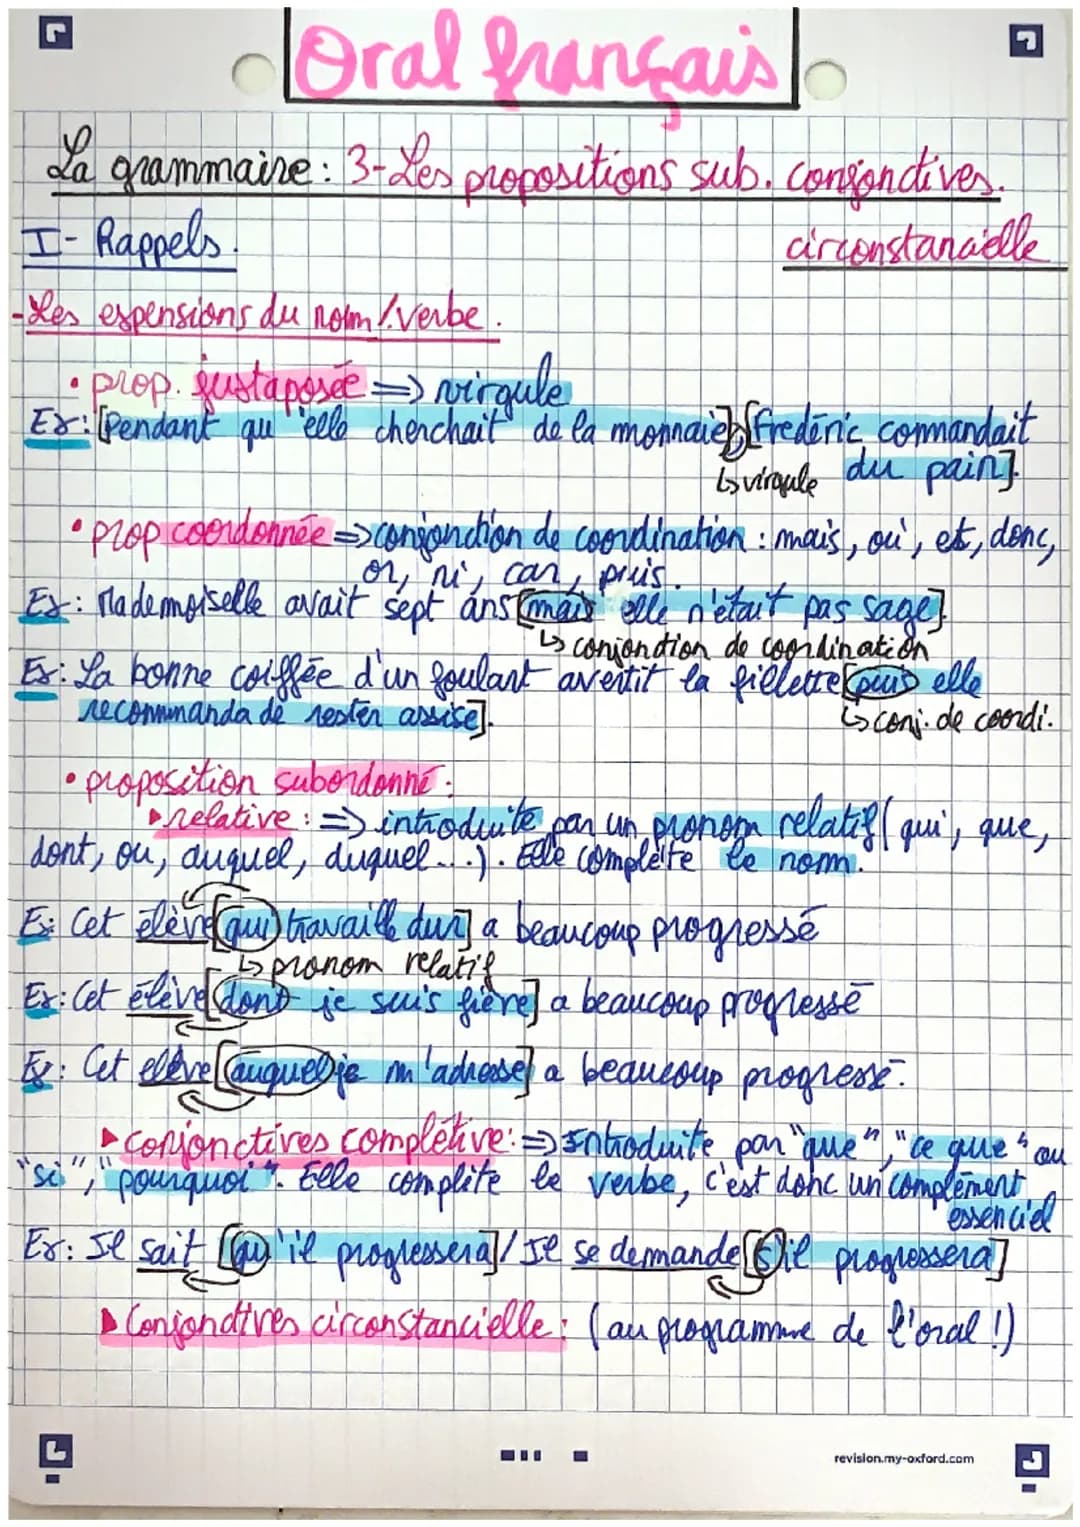 Oral français
La grammaire : 3-Les propositions sub. conjonctives.
circonstancielle
I- Rappels.
-Les expensions du nom/verbe.
• prop. juxtaposée => virgule
Ex: [Pendant qu'elle cherchait de la monnaie], [Frédéric commandait
du pain].
↳ virgule
• prop coordonnée => conjonction de coordination : mais, ou, et, donc,
or, ni, car, puis.
Ex: Mademoiselle avait sept ans [mais elle n'était pas sage].
↳ conjonction de coordination
Ex: La bonne coiffée d'un foulard avertit la fillette [puis elle
recommanda de rester assise].
↳ conj. de coordi.
• proposition subordonné :
▸ relative : => introduite par un pronom relatif ( qui, que,
dont, ou, auquel, duquel ...). Elle complète le nom.
Ex: Cet élève [qui travaille dur] a beaucoup progressé
↳ pronom relatif
Ex: Cet élève [dont je suis fière] a beaucoup progressé
Ex: Cet élève [auquel je m'adresse] a beaucoup progressé.
▸ conjonctives complétive : => Introduite par "que", "ce que" ou
"si", "pourquoi". Elle complète le verbe, c'est donc un complément
essenciel
Ex: Il sait [qu'il progressera] / Il se demande [s'il progressera]
▸ Conjonctives circonstancielle : (au programme de l'oral !)
revision.my-oxford.com